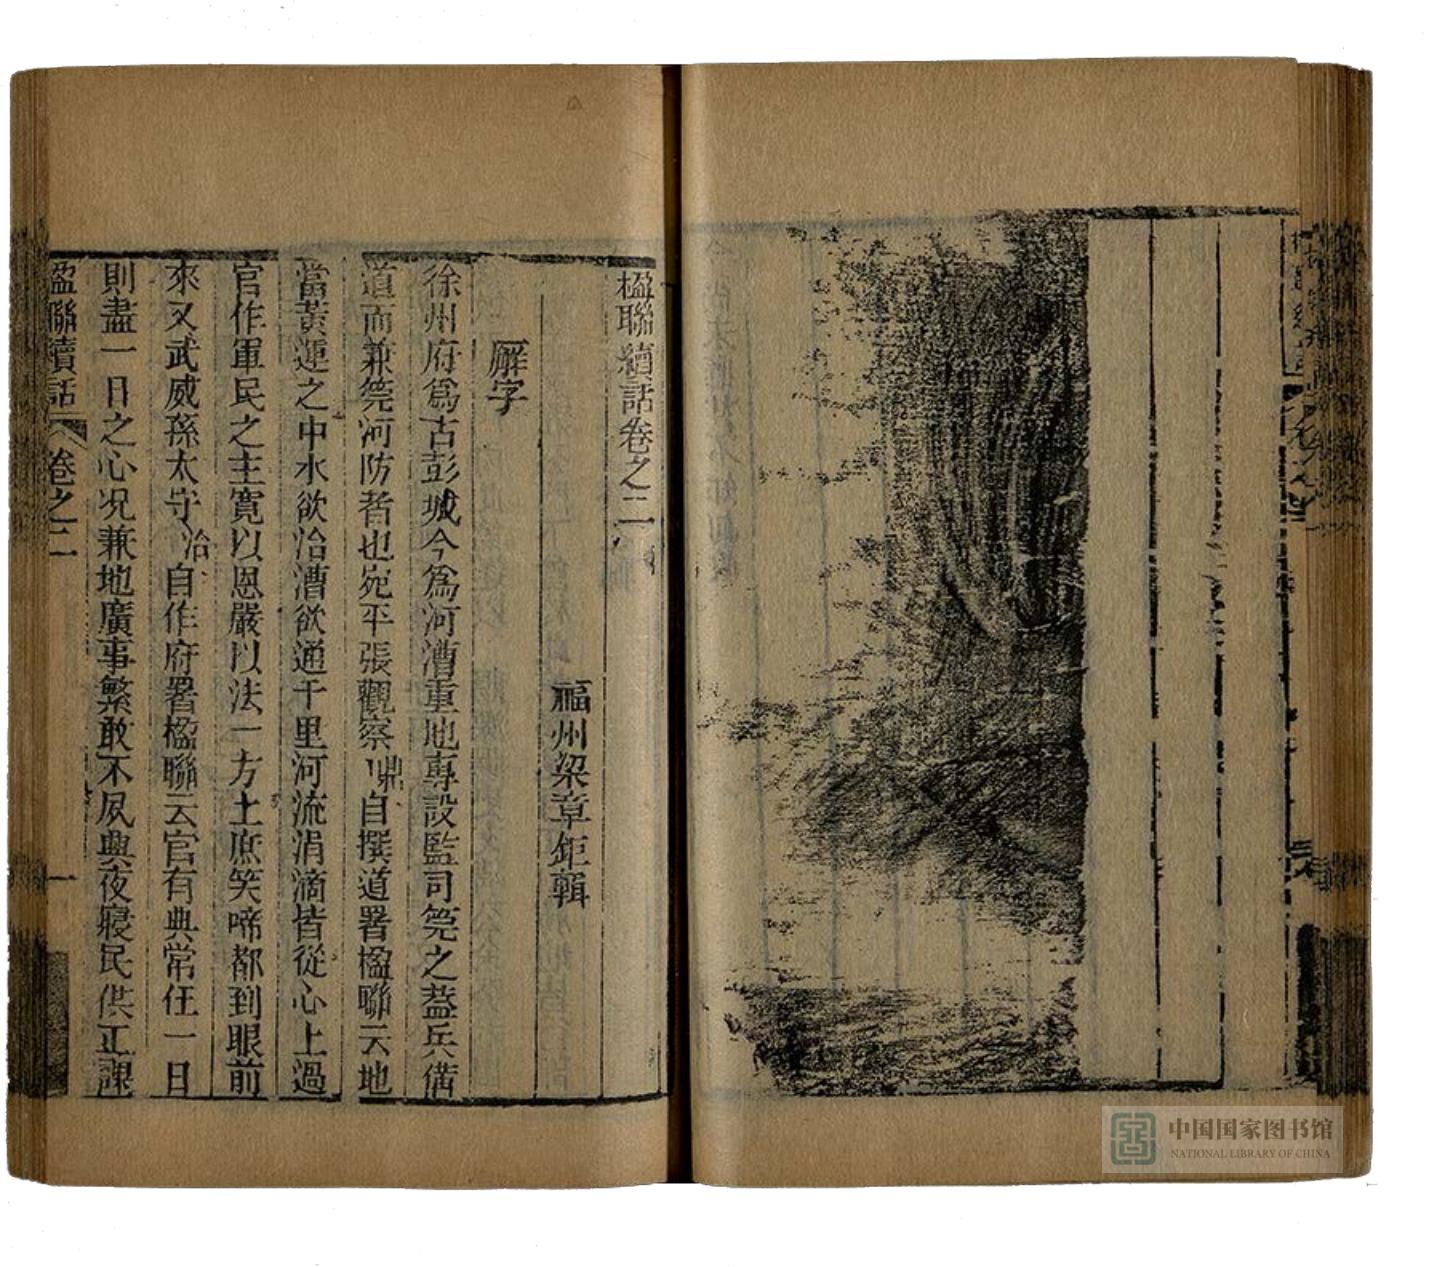 楹聯續話卷之二
福州梁章鉅輯
廨字
徐州府爲古彭城今爲河漕重地專設監司筦之葢兵備
道而兼筦河防者也宛平張觀察鼎自撰道署楹聯云地
當黃運之中水欲治漕欲通千里河流涓滴皆從心上過
官作軍民之主寬以恩嚴以法一方土庶笑啼都到眼前
來又武威孫太守治自作府署楹聯云官有典常任一日
則盡一日之心况兼地廣事繁敢不夙興夜寢民供正課
楹聯續話 卷之二 一
中国国家图书馆
NATIONAL LIBRARY OF CHINA